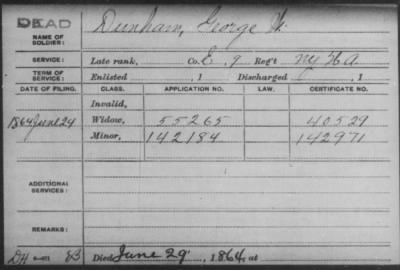 DEAD
NAME OF SOLDIER: Dunham, George W.
SERVICE: Late rank, Co. E, 9 Reg't NY H A.
TERM OF SERVICE: Enlisted , 1 Discharged , 1
DATE OF FILING. CLASS. APPLICATION NO. LAW. CERTIFICATE NO.
Invalid,
1864 June 24 Widow, 55265 40529
Minor, 142184 142971
ADDITIONAL SERVICES:
REMARKS:
83 Died June 29, 1864, at